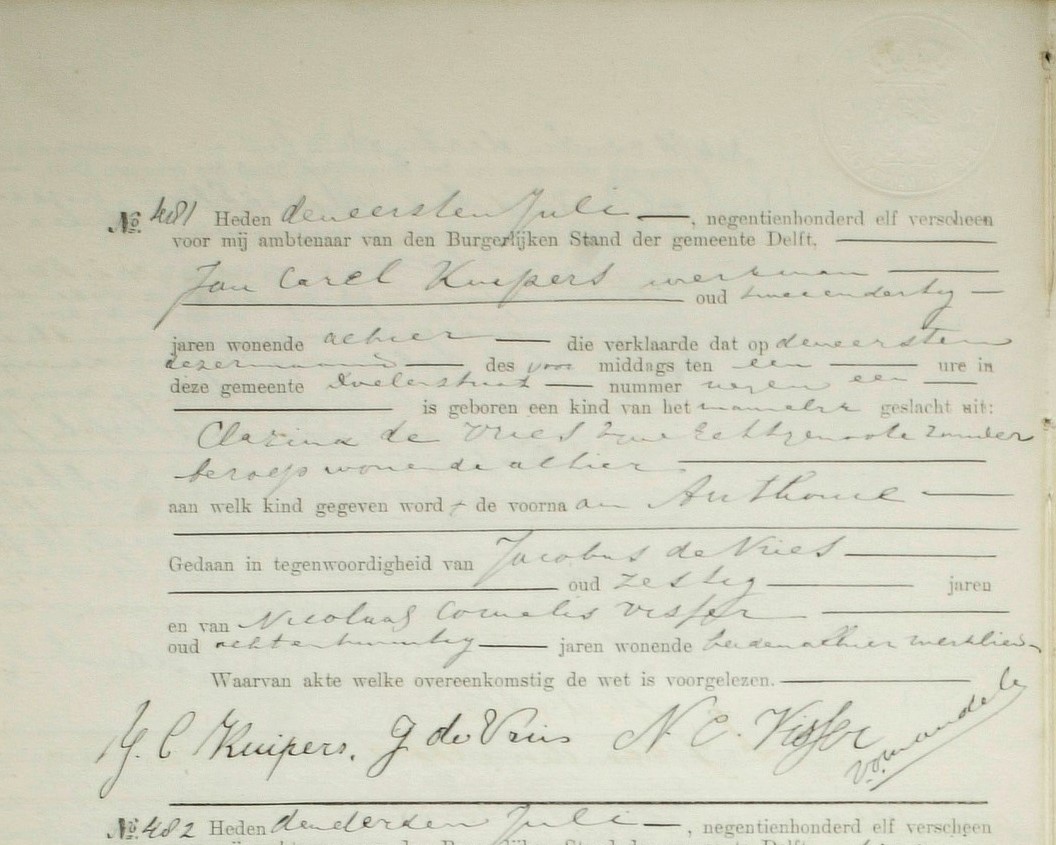 No. 481 Heden den eersten Juli —, negentienhonderd elf verscheen
voor mij ambtenaar van den Burgerlijken Stand der gemeente Delft,
Jan Carel Kuipers werkman
oud twee en dertig
jaren wonende alhier — die verklaarde dat op den eersten
dezer maand — des voor middags ten een — ure in
deze gemeente Doelenstraat — nummer negen een
is geboren een kind van het mannelijk geslacht uit:
Clazina de Vries zijne Echtgenoote zonder
beroep wonende alhier
aan welk kind gegeven word de voorna am Anthonie
Gedaan in tegenwoordigheid van Jacobus de Vries
oud zestig — jaren
en van Nicolaas Cornelis Visser
oud acht en twintig — jaren wonende beiden alhier werklied
Waarvan akte welke overeenkomstig de wet is voorgelezen.
J. C Kuipers. J de Vries N. C. Visser
No. 482 Heden den derden Juli —, negentienhonderd elf verscheen